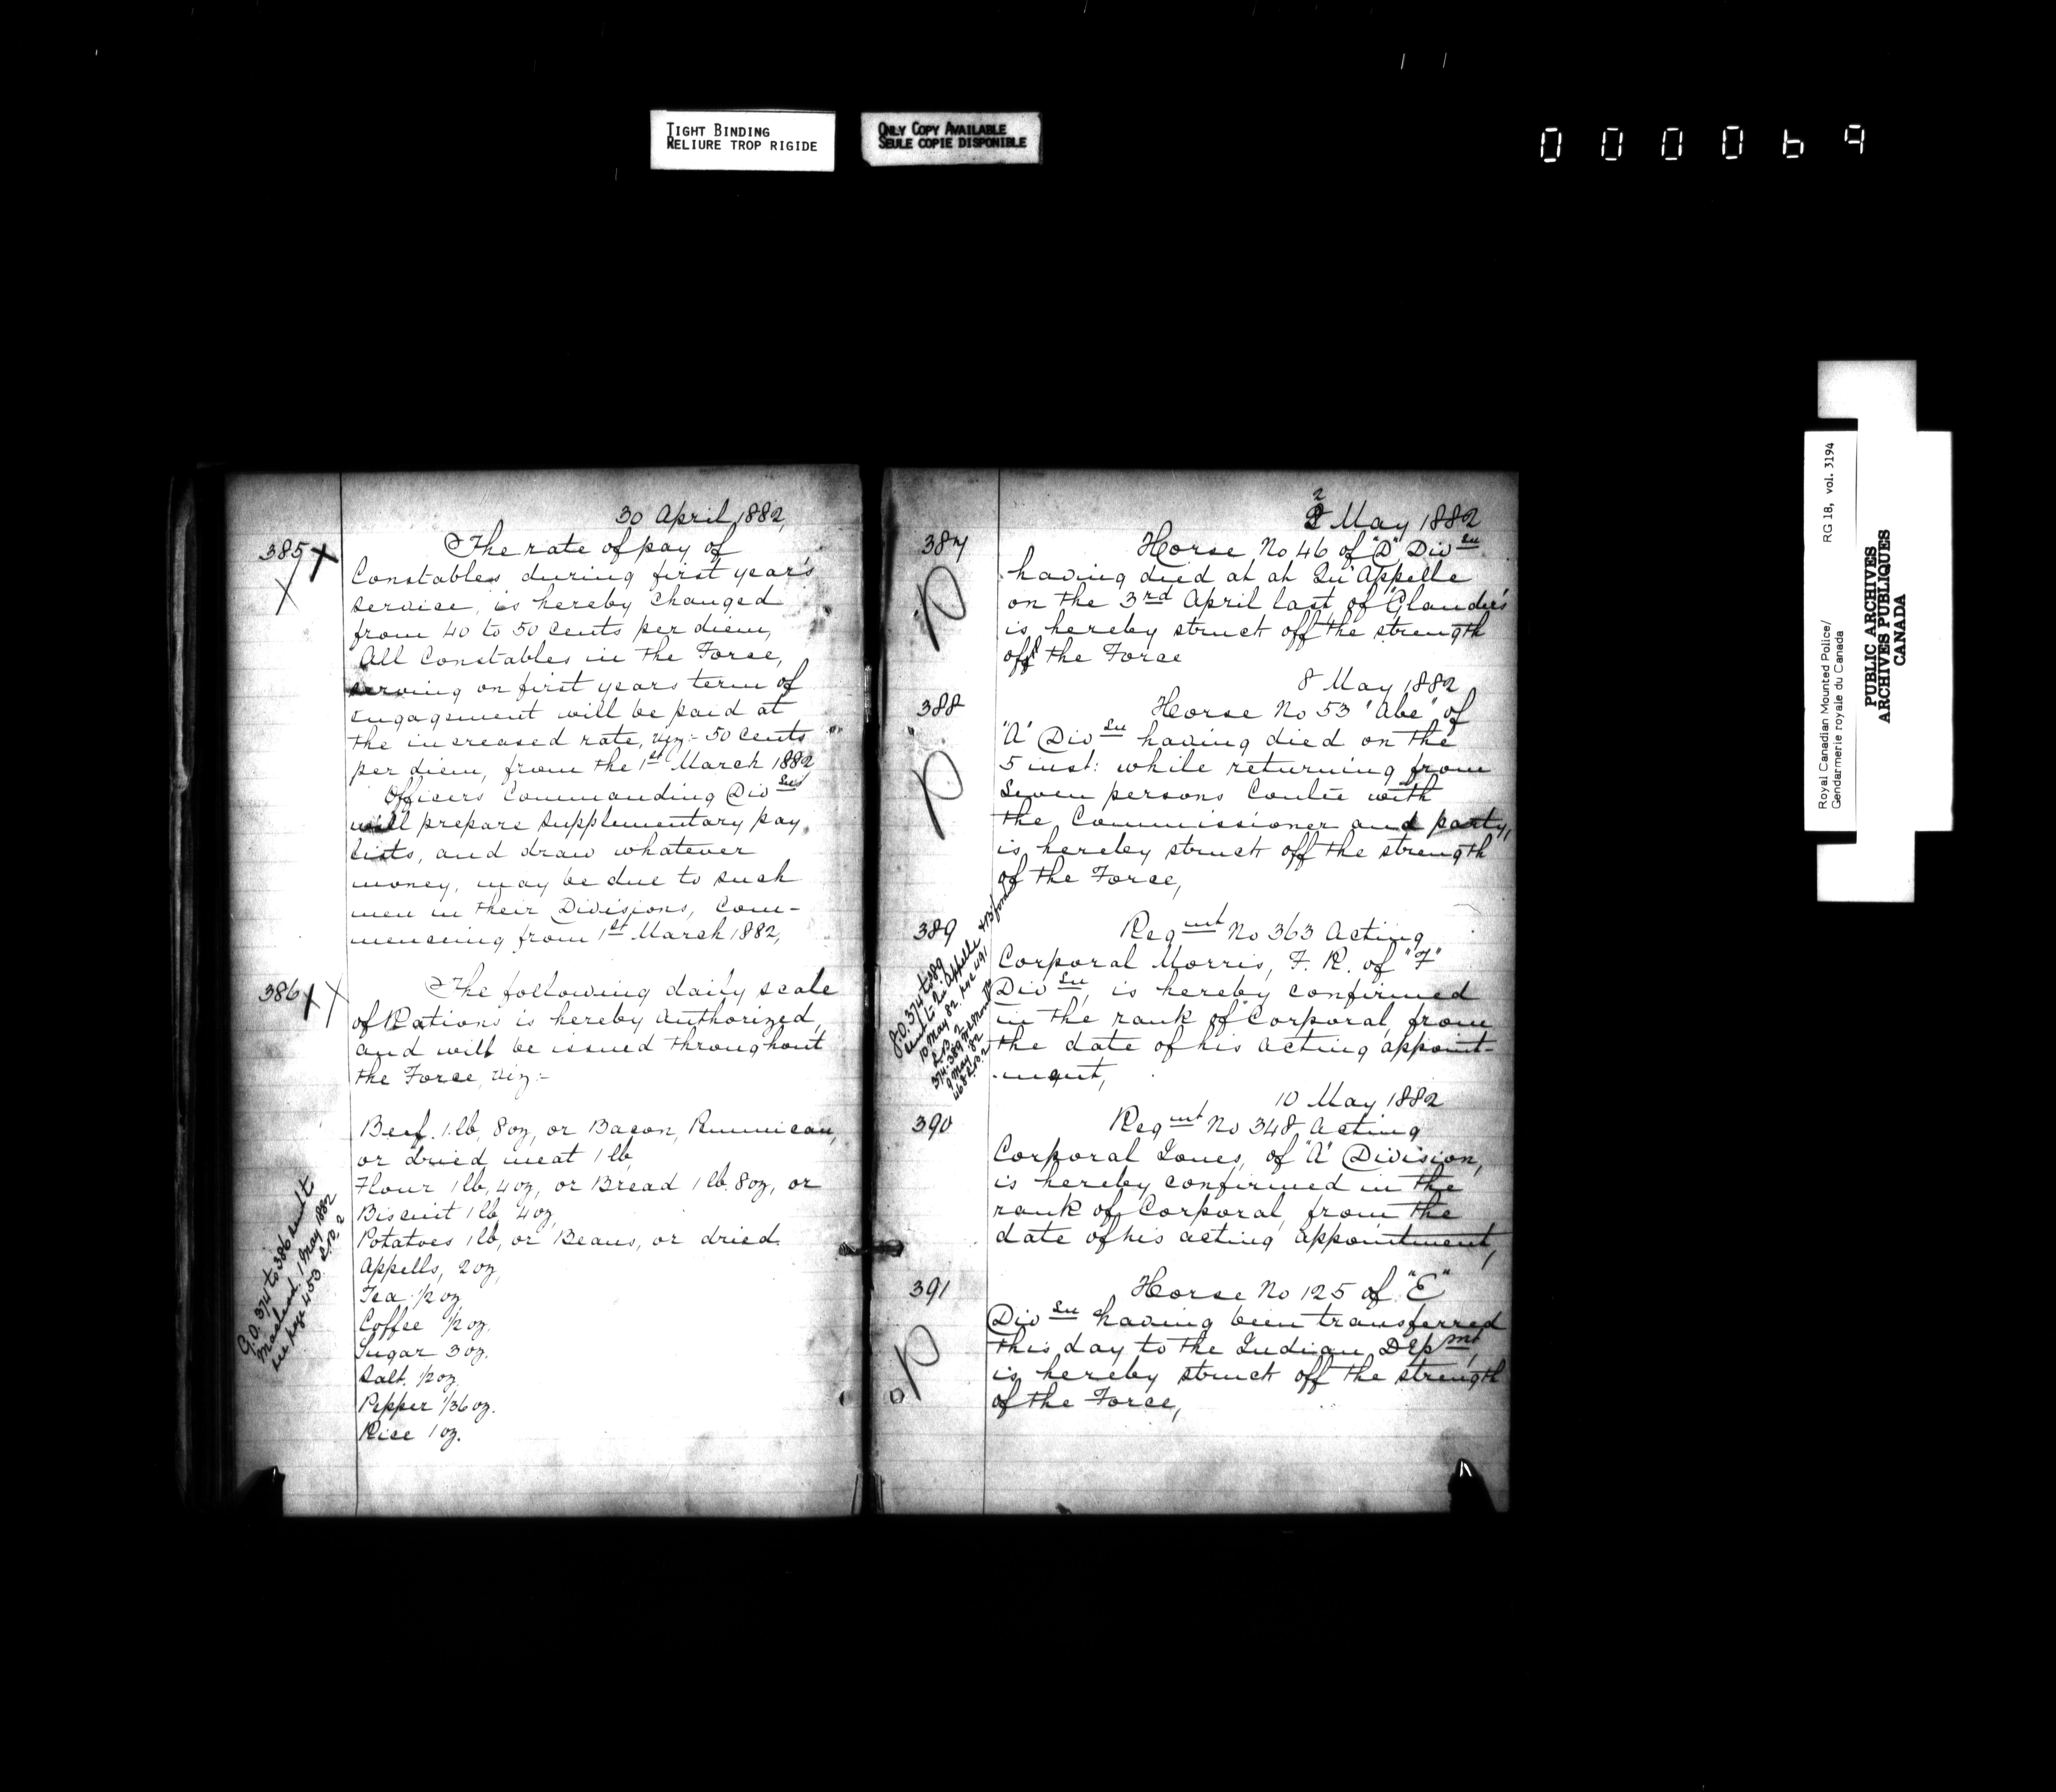 TIGHT BINDING
RELIURE TROP RIGIDE
ONLY COPY AVAILABLE
SEULE COPIE DISPONIBLE
000069
30 April 1882,
385
The rate of pay of
Constables, during first year's
service, is hereby changed
from 40 to 50 cents per diem,
All Constables in the Force,
serving on first years term of
engagement will be paid at
the increased rate, viz:- 50 cents
per diem, from the 1st March 1882
Officers Commanding Divsns
will prepare supplementary pay
lists, and draw whatever
money, may be due to such
men in their Divisions, com-
mencing from 1st March 1882,
386
The following daily scale
of Rations is hereby authorized,
and will be issued throughout
the Force, viz:-
Beef. 1 lb, 8 oz, or Bacon, Pemmican,
or dried meat 1 lb,
Flour 1 lb, 4 oz, or Bread 1 lb. 8 oz, or
Biscuit 1 lb, 4 oz,
Potatoes 1 lb, or Beans, or dried
Appells, 2 oz,
Tea 1/2 oz
Coffee 1/2 oz.
Sugar 3 oz.
Salt. 1/2 oz.
Pepper 1/36 oz.
Rice 1 oz.
G.O. 374 to 386 sent to
Macleod, 1 May 1882
see page 453 L.B. 2
2 May 1882
387
Horse No 46 of "D" Divsn
having died at at Qu'Appelle
on the 3rd April last, of Glanders
is hereby struck off the strength
off the Force
8 May 1882
388
Horse No 53 "Abe" of
"A" Divsn having died on the
5 inst: while returning from
Seven persons Coulee with
the Commissioner and party,
is hereby struck off the strength
of the Force,
389
Regmt No 363 Acting
Corporal Morris, F. R. of "F"
Divsn, is hereby confirmed
in the rank of Corporal, from
the date of his acting appoint-
ment,
G.O. 374 to 389
sent to Qu'Appelle
10 May 82.
L.B. 2
374-389
9 May 82
468 L.B. 2
10 May 1882
390
Regmt No 348 Acting
Corporal Jones, of "A" Division,
is hereby confirmed in the
rank of Corporal, from the
date of his acting appointment,
391
Horse No 125 of "E"
Divsn having been transferred
this day to the Indian Depmt,
is hereby struck off the strength
of the Force,
Royal Canadian Mounted Police/
Gendarmerie royale du Canada
RG 18, vol. 3194
PUBLIC ARCHIVES
ARCHIVES PUBLIQUES
CANADA